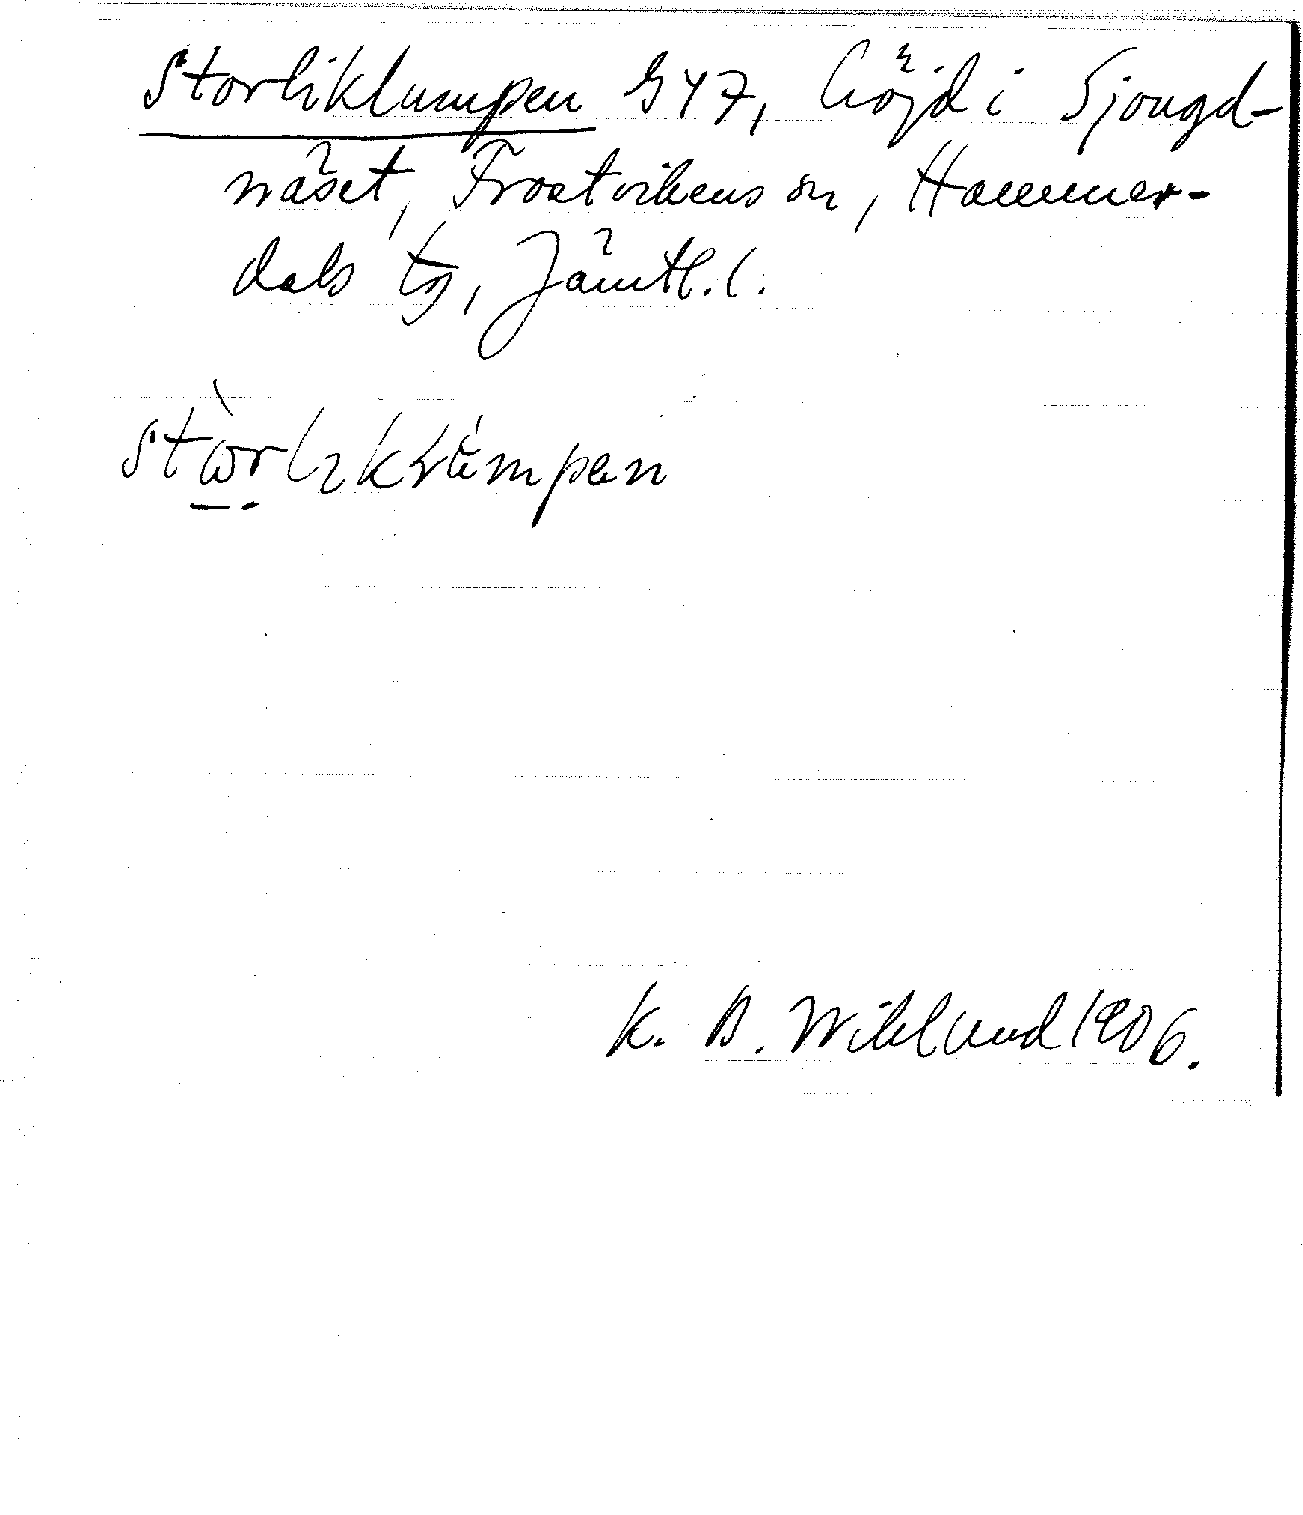 Storliklumpen 547, höjd i Sjougd-
näset, Frostvikens sn, Hammer-
dals tg, Jämtl. l.
K. B. Wiklund 1906.